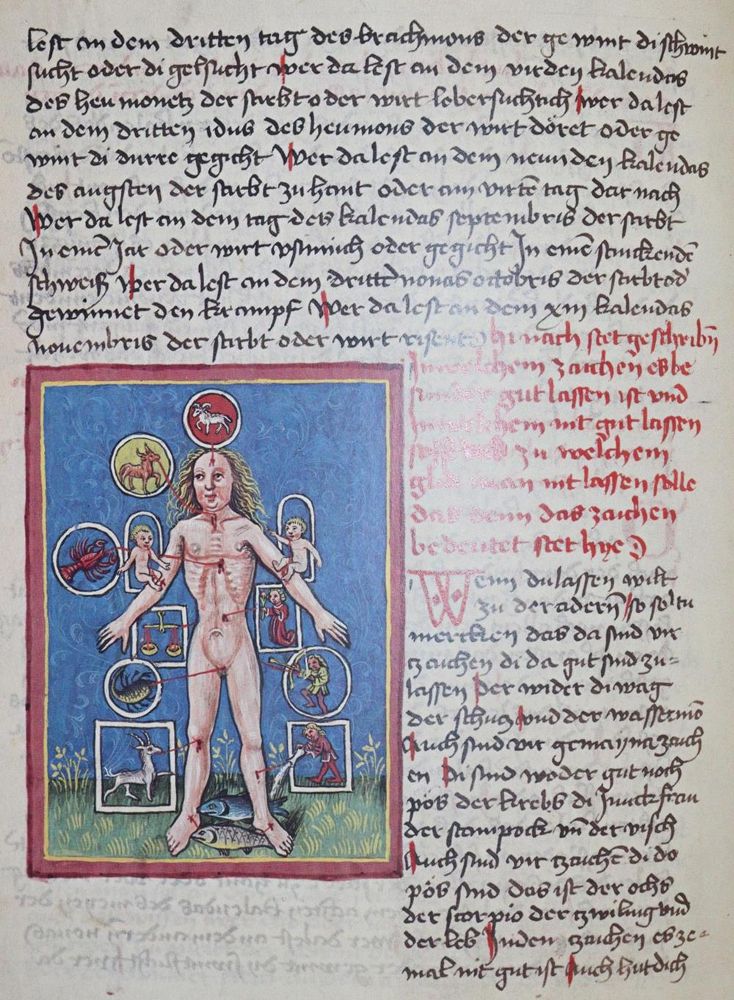 lest an dem dritten tag des brachmons der gewint di schwint
sucht oder di gelsucht wer da lest an dem virden kalendas
des heumonetz der stirbt oder wirt lebersuchtich wer da lest
an dem dritten idus des heumons der wirt döret oder ge
wint di durre gegicht Wer da lest an dem neunden kalendas
des augsten der stirbt zu hant oder am virtē tag dar nach
Wer da lest an dem tag des kalendas septembris der stirbt
In einē Jar oder wirt oder gegicht In einē stinckendē
schweiß Wer da lest an dem drittē nonas octobris der stirbt od
gewinnet den krampf Wer da lest an dem xiii kalendas
novembris der stirbt oder wirt hi nach stet geschribn̄
In welchem zaichen es be
sunder gut lassen ist und
In welchem nit gut lassen
zu welchem
glid man nit lassen solle
das denn das zaichen
bedeutet stet hye
Wenn du lassen wilt
zu der adern so soltu
mercken das da sind vir
tzaichen di da gut sind zu-
lassen Der wider di wag
der schutz und der wasserman
Auch sind vir gemayna zaich
en Di sind weder gut noch
pös der krebs di Junckfrau
der stainpock vn̄ der visch
Auch sind vir tzaichen di do
pös sind das ist der ochs
der scorpio der tzwiling und
der leb In den tzaichen es ze-
mal nit gut ist Auch hut dich